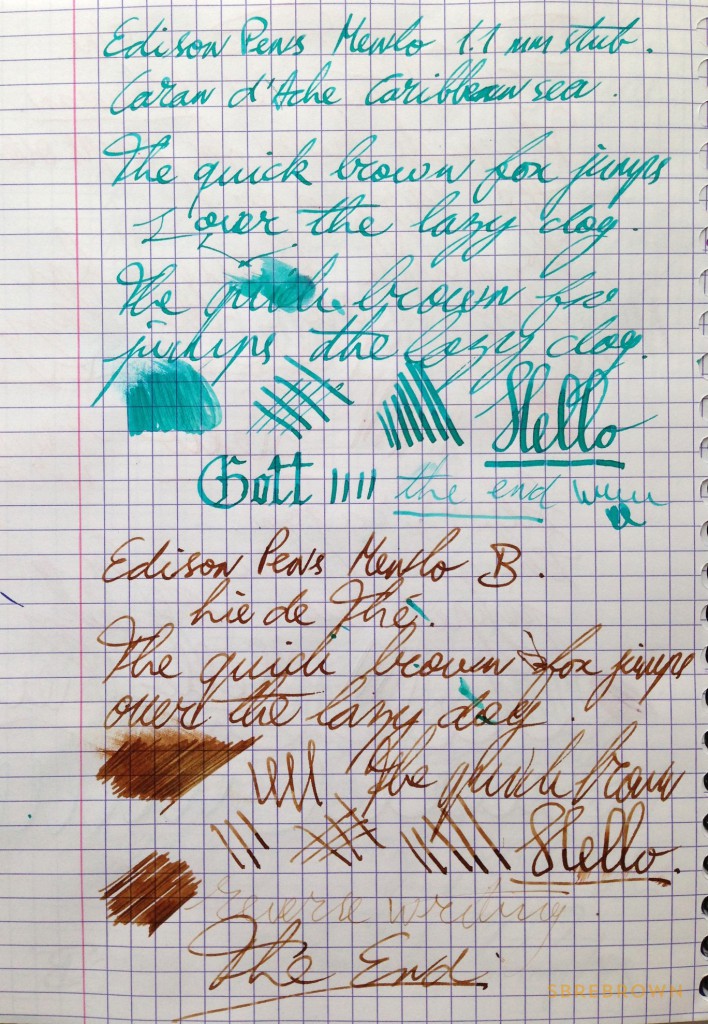 Edison Pens Menlo 1.1 mm stub.
Caran d'Ache Caribbean sea.
The quick brown fox jumps
over the lazy dog.
The quick brown fox
jumps the lazy dog.
Hello
Gott the end
Edison Pens Menlo B.
lie de Thé.
The quick brown fox jumps
over the lazy dog.
The quick brown
Hello.
reverse writing
The End.
SBREBROWN